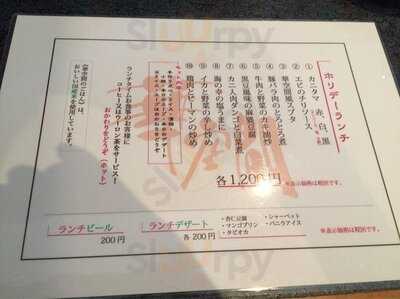 ホリデーランチ
① カニタマ 赤、白、黒
② エビのチリソース
③ 華空間風スブタ
④ 豚バラ肉のとろとろ煮
⑤ 牛肉と野菜のカキ油炒
⑥ 黒豆風味の麻婆豆腐
⑦ カニ入肉ダンゴと白菜煮
⑧ 海の幸の塩うまに
⑨ イカと野菜の辛し炒め
⑩ 鶏肉とピーマンの炒め
各1,200円
※表示価格は税別です。
ランチタイムお食事のお客様に
コーヒー又はウーロン茶をサービス!
おかわりをどうぞ(ホット)
《華空間のごはん》は、
おいしい国産米を使用しています。
ランチビール
200円
ランチデザート
各 200円
・杏仁豆腐
・マンゴプリン
・タピオカ
・シャーベット
・バニラアイス
※表示価格は税別です。